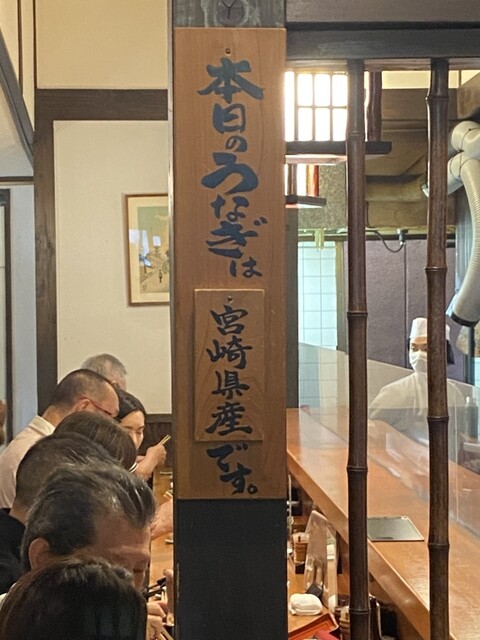 本日のうなぎは
宮崎県産
です。